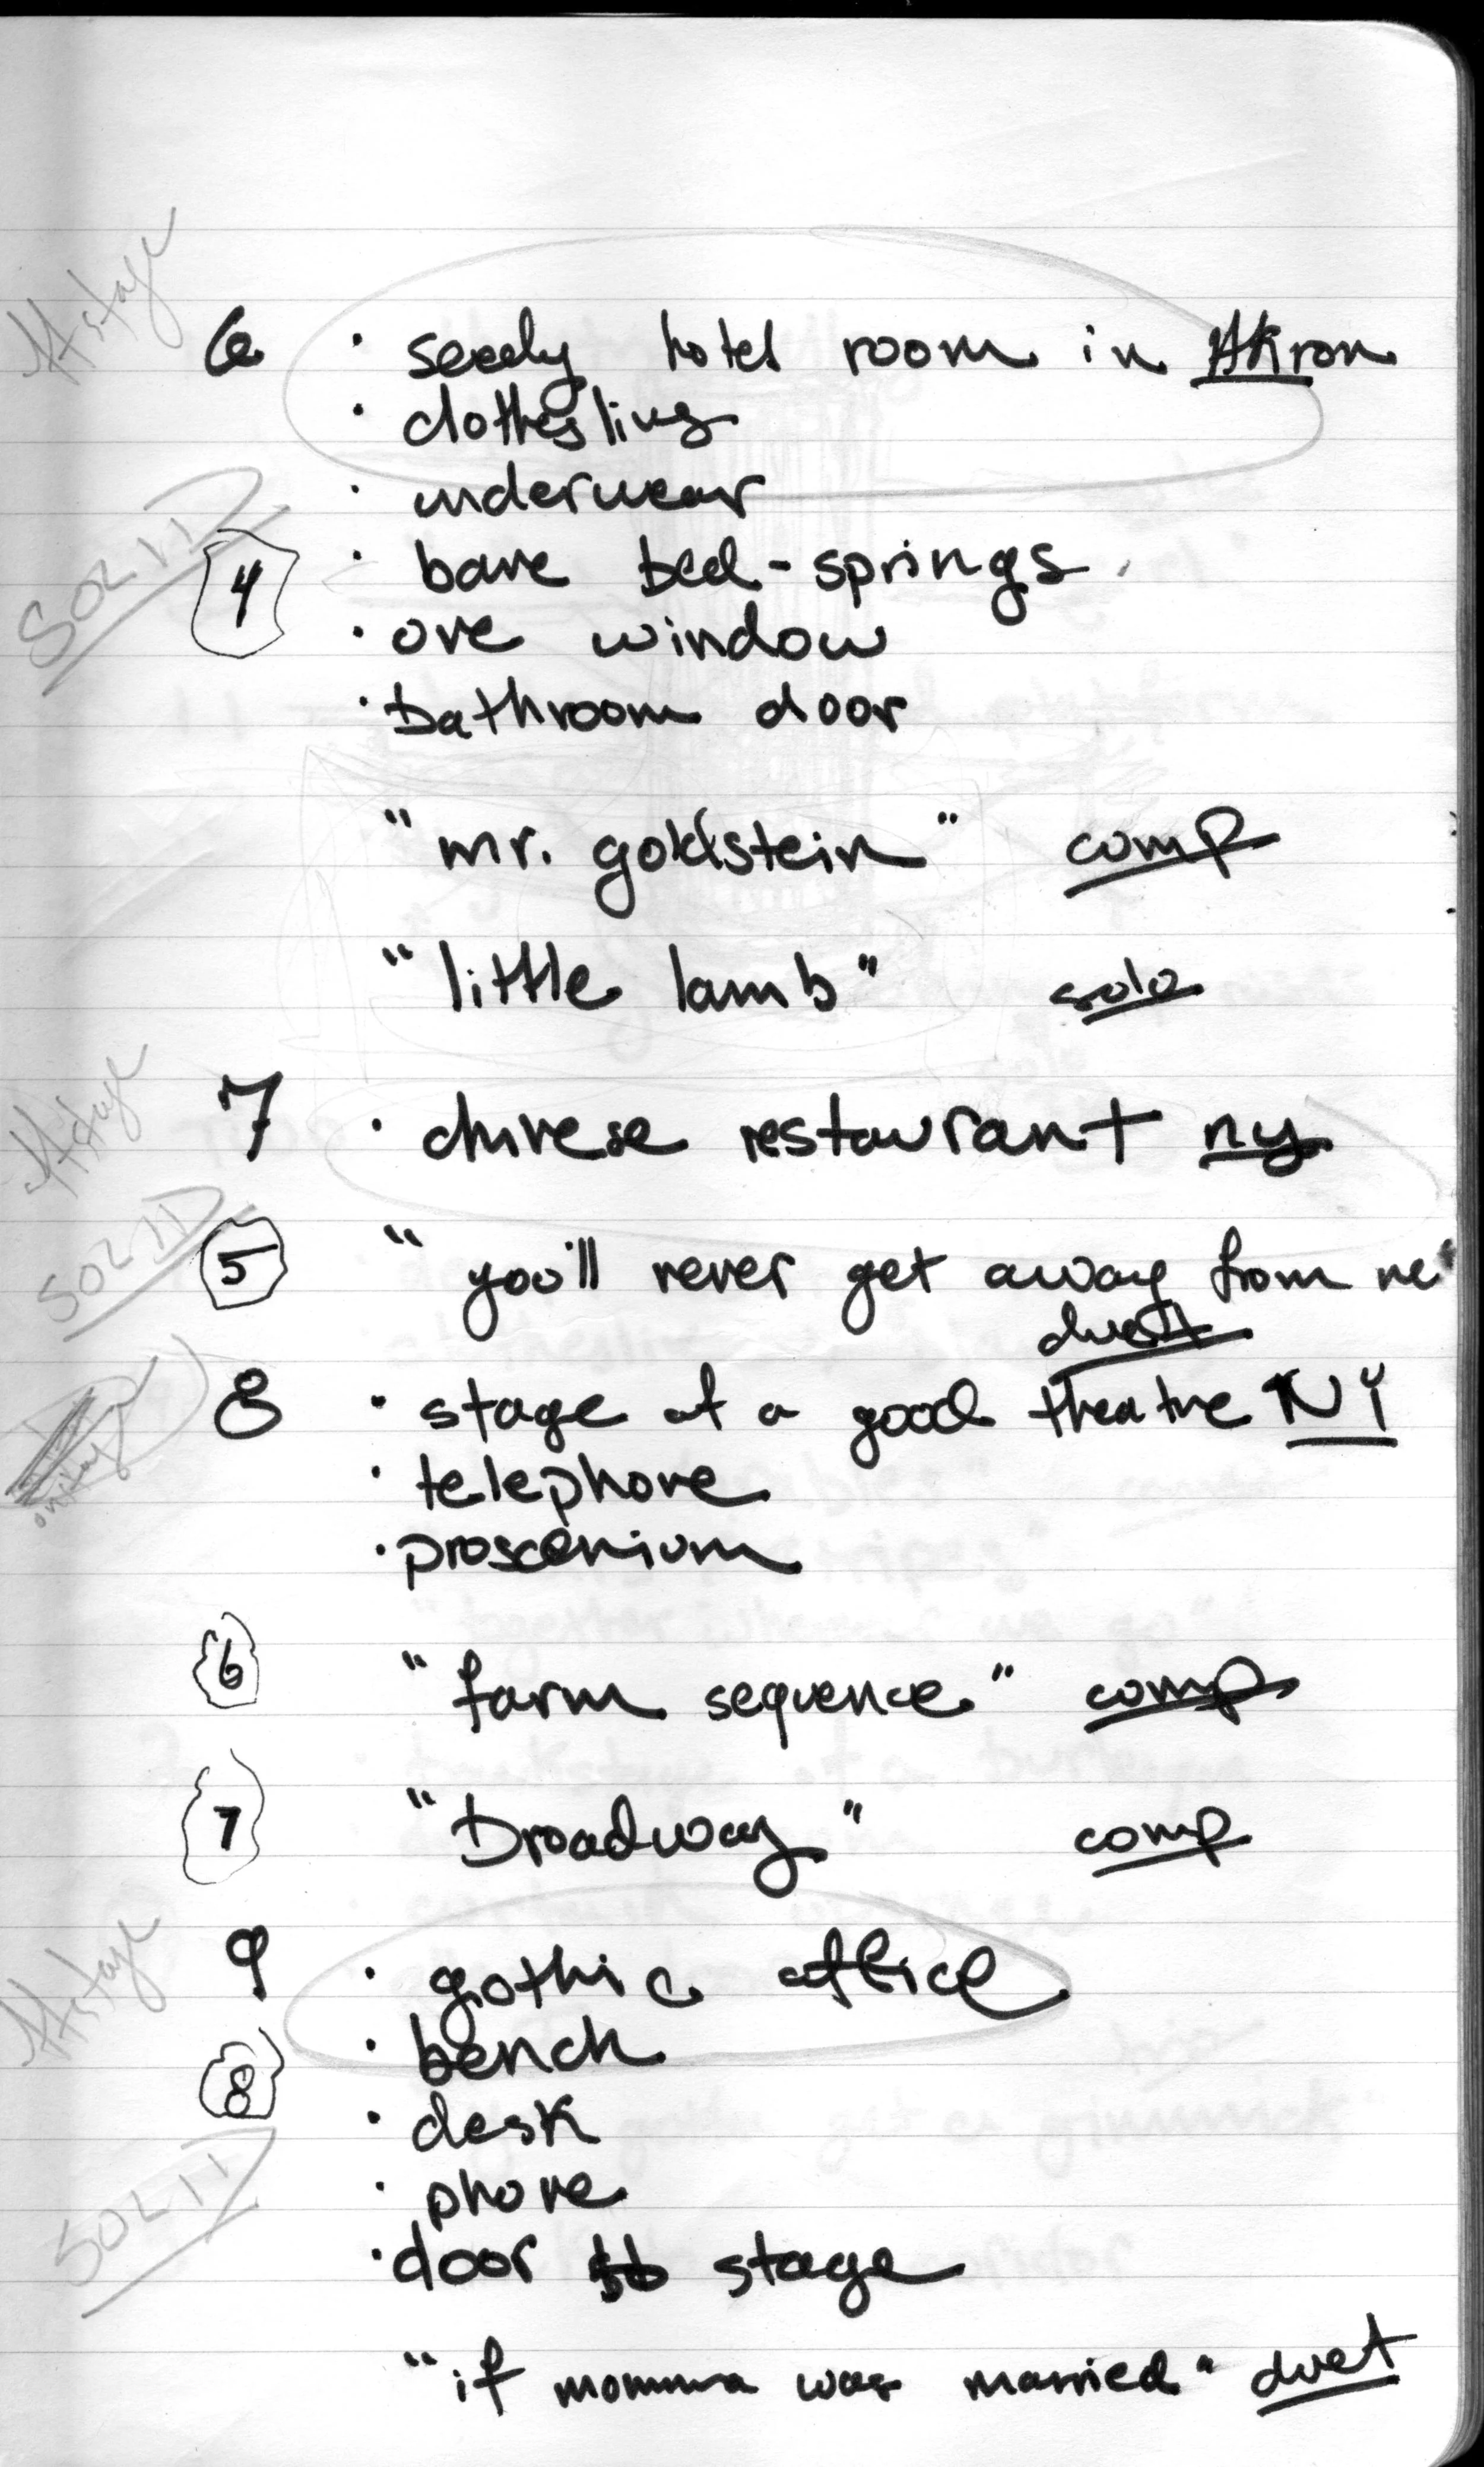 offstage
6 · seedy hotel room in Akron
· clothesling
· underwear
SOLID
4 · bare bed-springs
· one window
· bathroom door
"mr. goldstein" comp
"little lamb" solo
offstage
7 · chinese restaurant ny
SOLID
5 "you'll never get away from me"
duet
8 · stage of a good theatre NY
onstage
· telephone
· proscenium
6 "farm sequence" comp
7 "Broadway" comp
offstage
9 · gothic office
· bench
8
· desk
SOLID
· phone
· door to stage
"if momma was married" duet